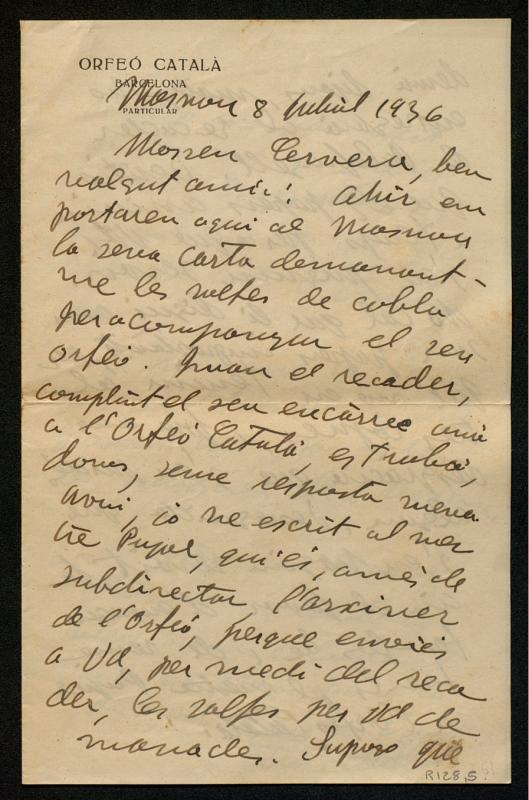 ORFEÓ CATALÀ
BARCELONA
PARTICULAR
Masnou 8 juliol 1936
Mossen Cervera, ben
volgut amic: Ahir em
portaren aquí al Masnou
la seva carta demanant-
me les solfes de cobla
per acompanyar el seu
orfeó. Quan el recader,
complint el seu encàrrec anà
a l'Orfeó Català, es trobà,
doncs, sense resposta meva.
Avui, jo he escrit al mes
tre Pujol, qui és, a més de
subdirector, l'arxiver
de l'Orfeó, perque envïes
a Vd, per medi del reca
der, les solfes per Vd de
manades. Suposo que
R128,5